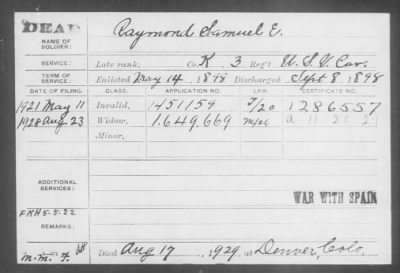 DEAD
NAME OF SOLDIER: Raymond Samuel E.
SERVICE: Late rank, Co. K 3 Reg't U.S.V. Cav.
TERM OF SERVICE: Enlisted May 14, 1898 Discharged Sept 8 1898
DATE OF FILING. CLASS. APPLICATION NO. LAW. CERTIFICATE NO.
1921 May 11 Invalid, 1451159 1286557
1928 Aug 23 Widow, 1,649,669
Minor,
ADDITIONAL SERVICES:
WAR WITH SPAIN
FKH 5-5-22
REMARKS:
Died Aug 17, 1929, at Denver, Colo.